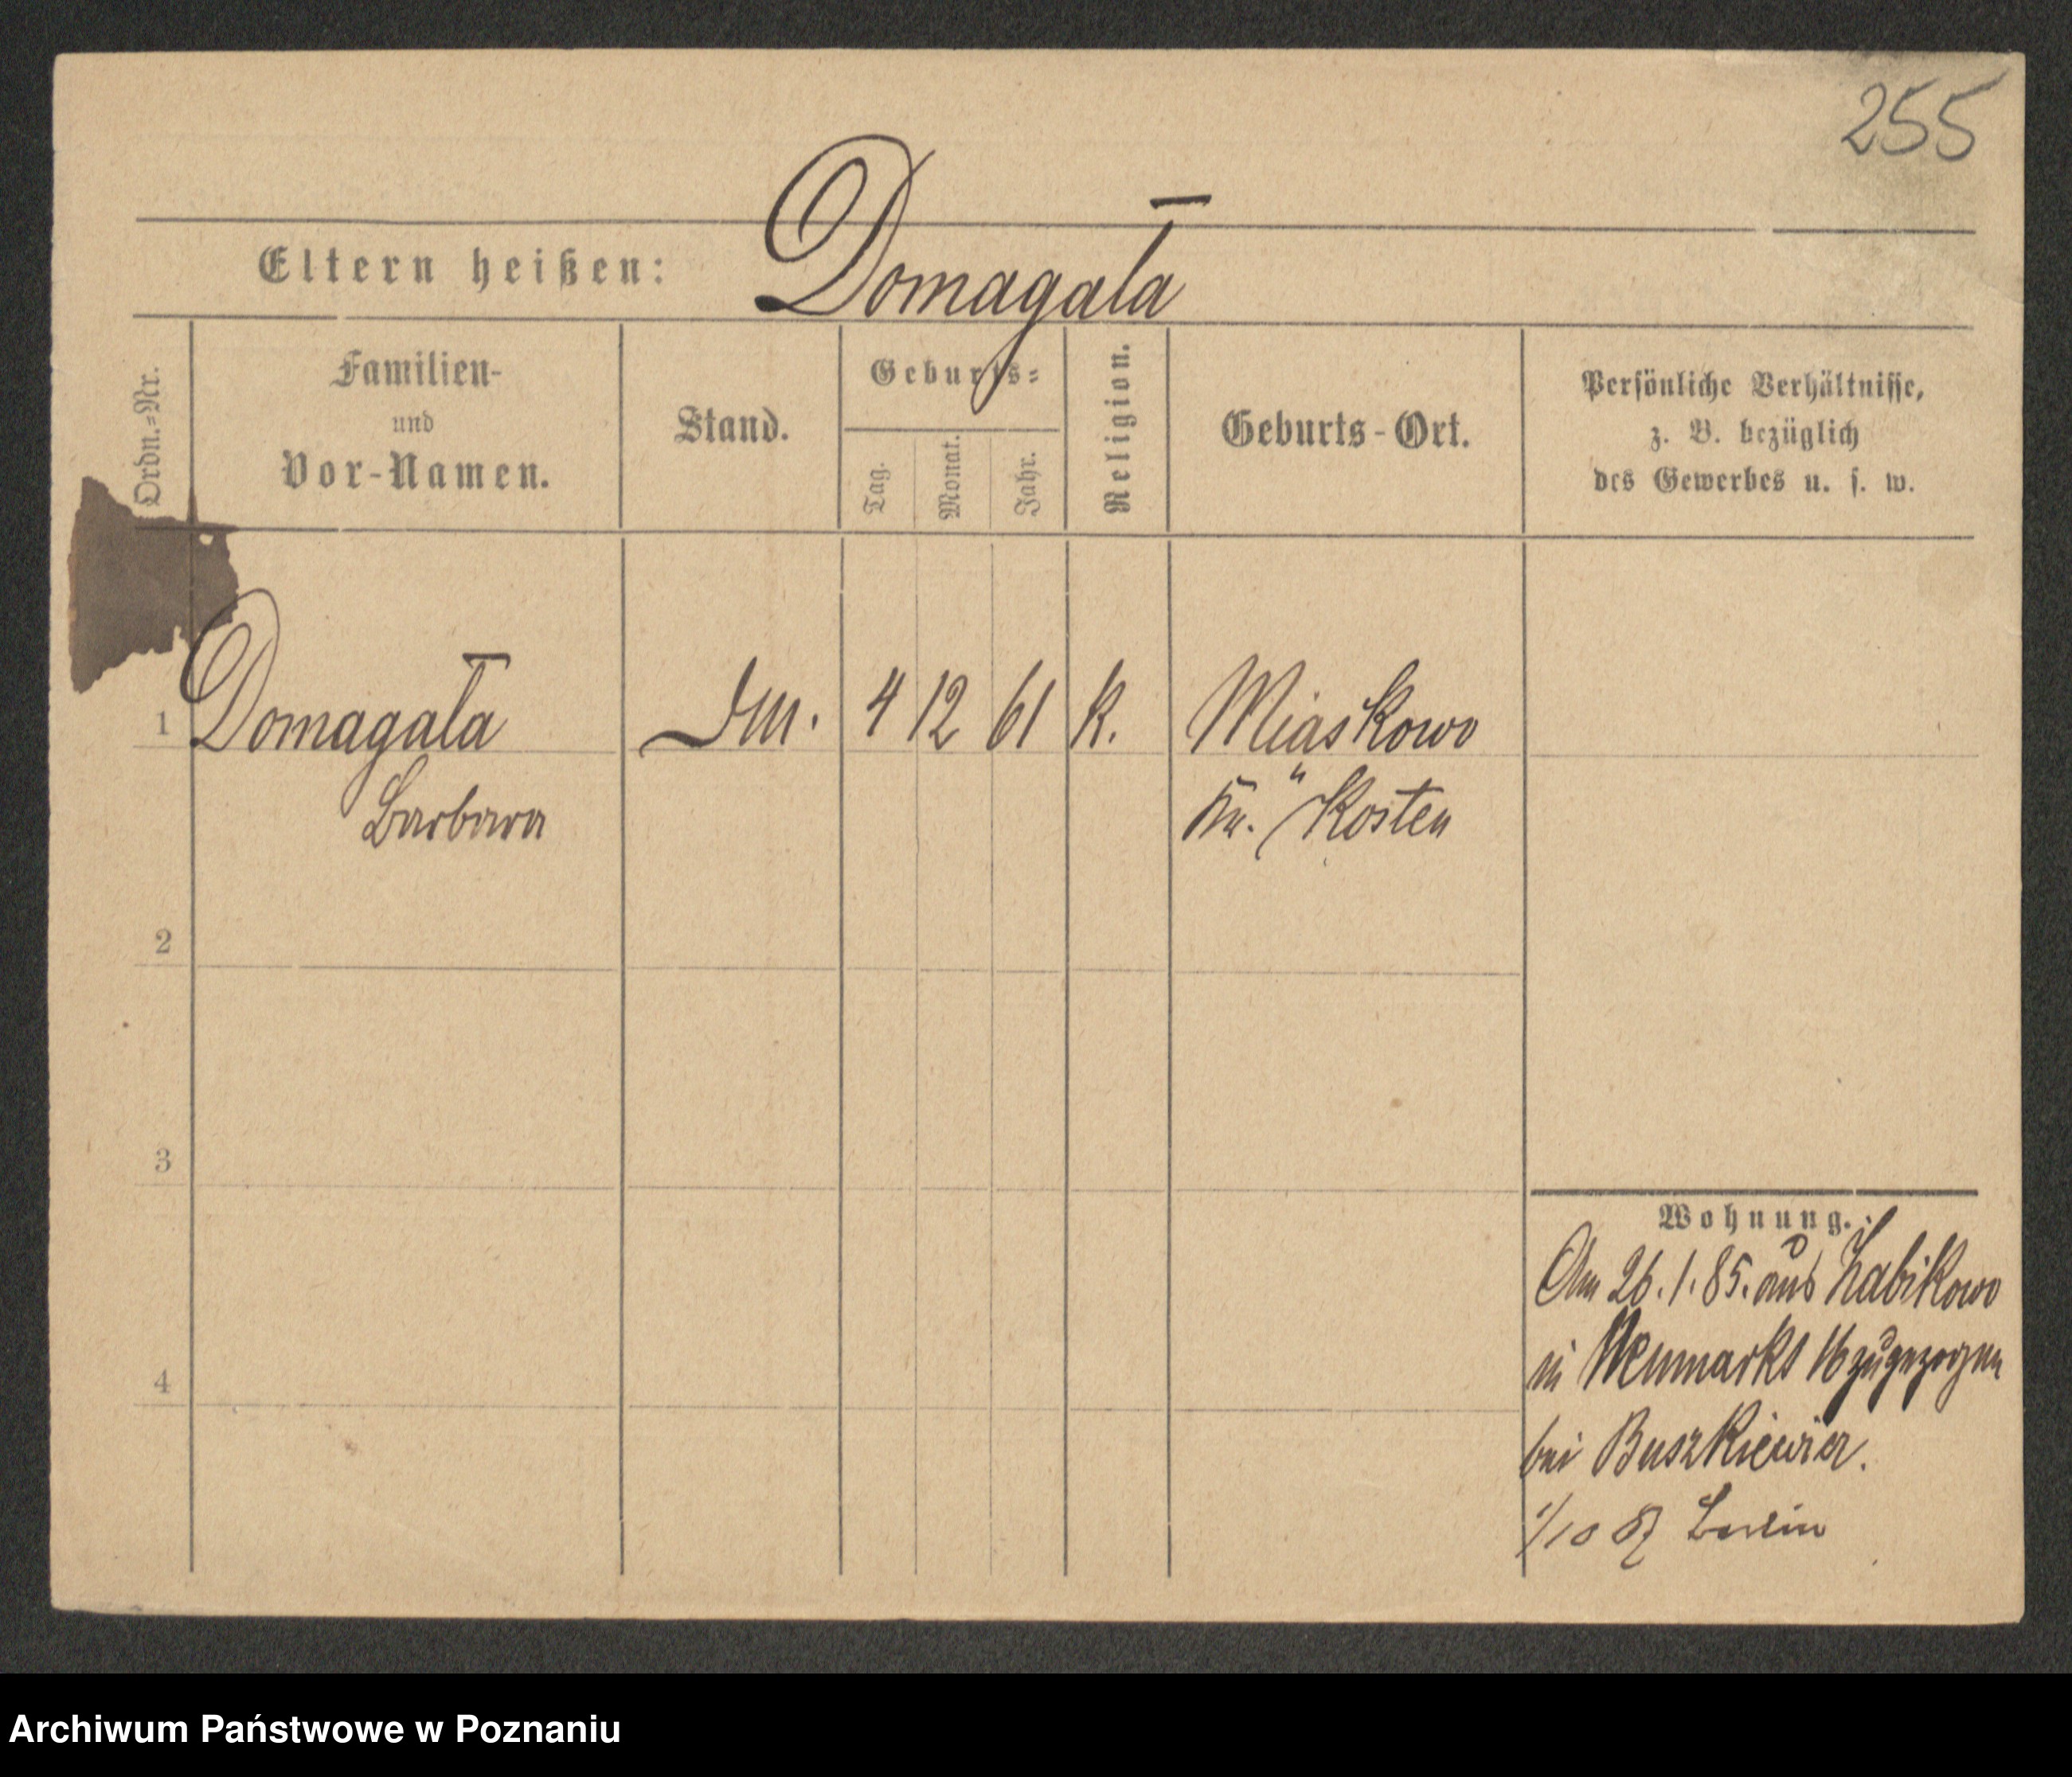 255
Eltern heißen: Domagała
Ordn.=Nr.
Familien-
und
Vor-Namen.
Stand.
Geburts=
Tag.
Monat.
Jahr.
Religion.
Geburts-Ort.
Persönliche Verhältnisse,
z. B. bezüglich
des Gewerbes u. s. w.
1 Domagała 4 12 61 K. Miaskowo
Barbara Kr. Kosten
2
3
4
Wohnung.
Am 26.1.85. aus Żabikowo
in 16 zugezogen
bei Buszkiewicz.
1/10 87 Berlin
Archiwum Państwowe w Poznaniu